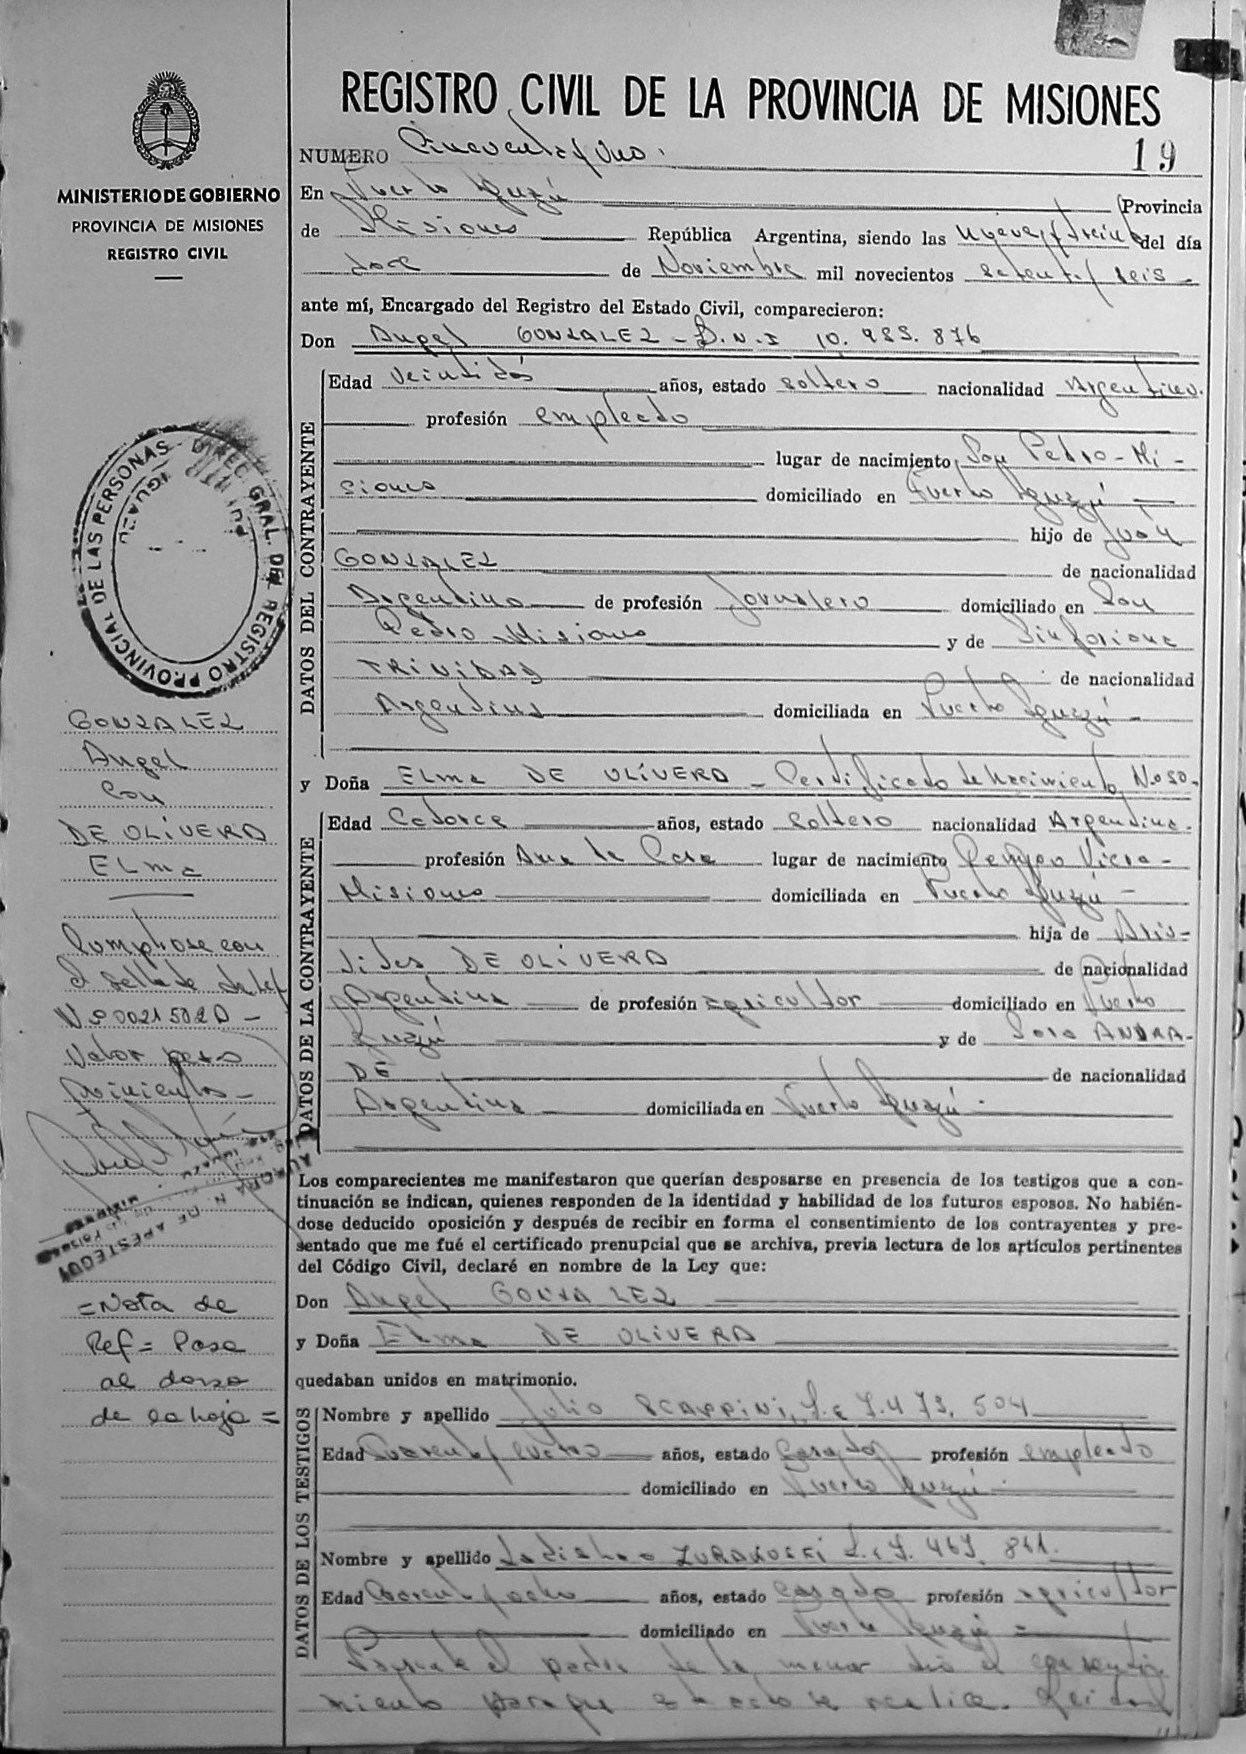 MINISTERIO DE GOBIERNO
PROVINCIA DE MISIONES
REGISTRO CIVIL
DIREC. GRAL. DEL REGISTRO PROVINCIAL DE LAS PERSONAS
PUERTO IGUAZU
GONZALEZ
Angel
con
DE OLIVERA
Elma
Cumpliose con
el sellado de ley
Nº 0021502D -
Valor pesos
quinientos -
AURORA N. DE APESTEGUY
= Nota de
Ref = Pasa
al dorso
de la hoja =
REGISTRO CIVIL DE LA PROVINCIA DE MISIONES
NUMERO Cincuenta y Uno.
19
En Puerto Iguazú (Provincia
de Misiones República Argentina, siendo las nueve y treinta del día
doce de Noviembre mil novecientos setenta y seis -
ante mí, Encargado del Registro del Estado Civil, comparecieron:
Don Angel GONZALEZ - D.N.I 10. 983. 876
DATOS DEL CONTRAYENTE
Edad Veintidós años, estado soltero nacionalidad Argentino.
profesión empleado
lugar de nacimiento San Pedro - Mi -
siones domiciliado en Puerto Iguazú
hijo de Juan
GONZALEZ de nacionalidad
Argentino de profesión Jornalero domiciliado en San
Pedro Misiones y de Sinforiana
TRINIDAD de nacionalidad
Argentina domiciliada en Puerto Iguazú -
y Doña Elma DE OLIVERA - Certificado de Nacimiento Nº 50-
DATOS DE LA CONTRAYENTE
Edad Catorce años, estado Soltero nacionalidad Argentina.
profesión Ama de Casa lugar de nacimiento Cerygeo Viera -
Misiones domiciliada en Puerto Iguazú -
hija de Aris-
tides DE OLIVERA de nacionalidad
Argentina de profesión agricultor domiciliado en Puerto
Iguazú y de Sara ANDRA-
DE de nacionalidad
Argentina domiciliada en Puerto Iguazú -
Los comparecientes me manifestaron que querían desposarse en presencia de los testigos que a con-
tinuación se indican, quienes responden de la identidad y habilidad de los futuros esposos. No habién-
dose deducido oposición y después de recibir en forma el consentimiento de los contrayentes y pre-
sentado que me fué el certificado prenupcial que se archiva, previa lectura de los artículos pertinentes
del Código Civil, declaré en nombre de la Ley que:
Don Angel GONZALEZ
y Doña Elma DE OLIVERA
quedaban unidos en matrimonio.
DATOS DE LOS TESTIGOS
Nombre y apellido Julio SCAPPINI, L.E 7.473. 504
Edad Cuarenta y cuatro años, estado Casado profesión empleado
domiciliado en Puerto Iguazú -
Nombre y apellido Ladislao ZURAKOSKI L.E 7. 467. 841.
Edad Cuarenta y ocho años, estado casado profesión agricultor
domiciliado en Puerto Iguazú
Presente el padre de la menor dió el consenti-
miento para que este acto se realice. Leida el